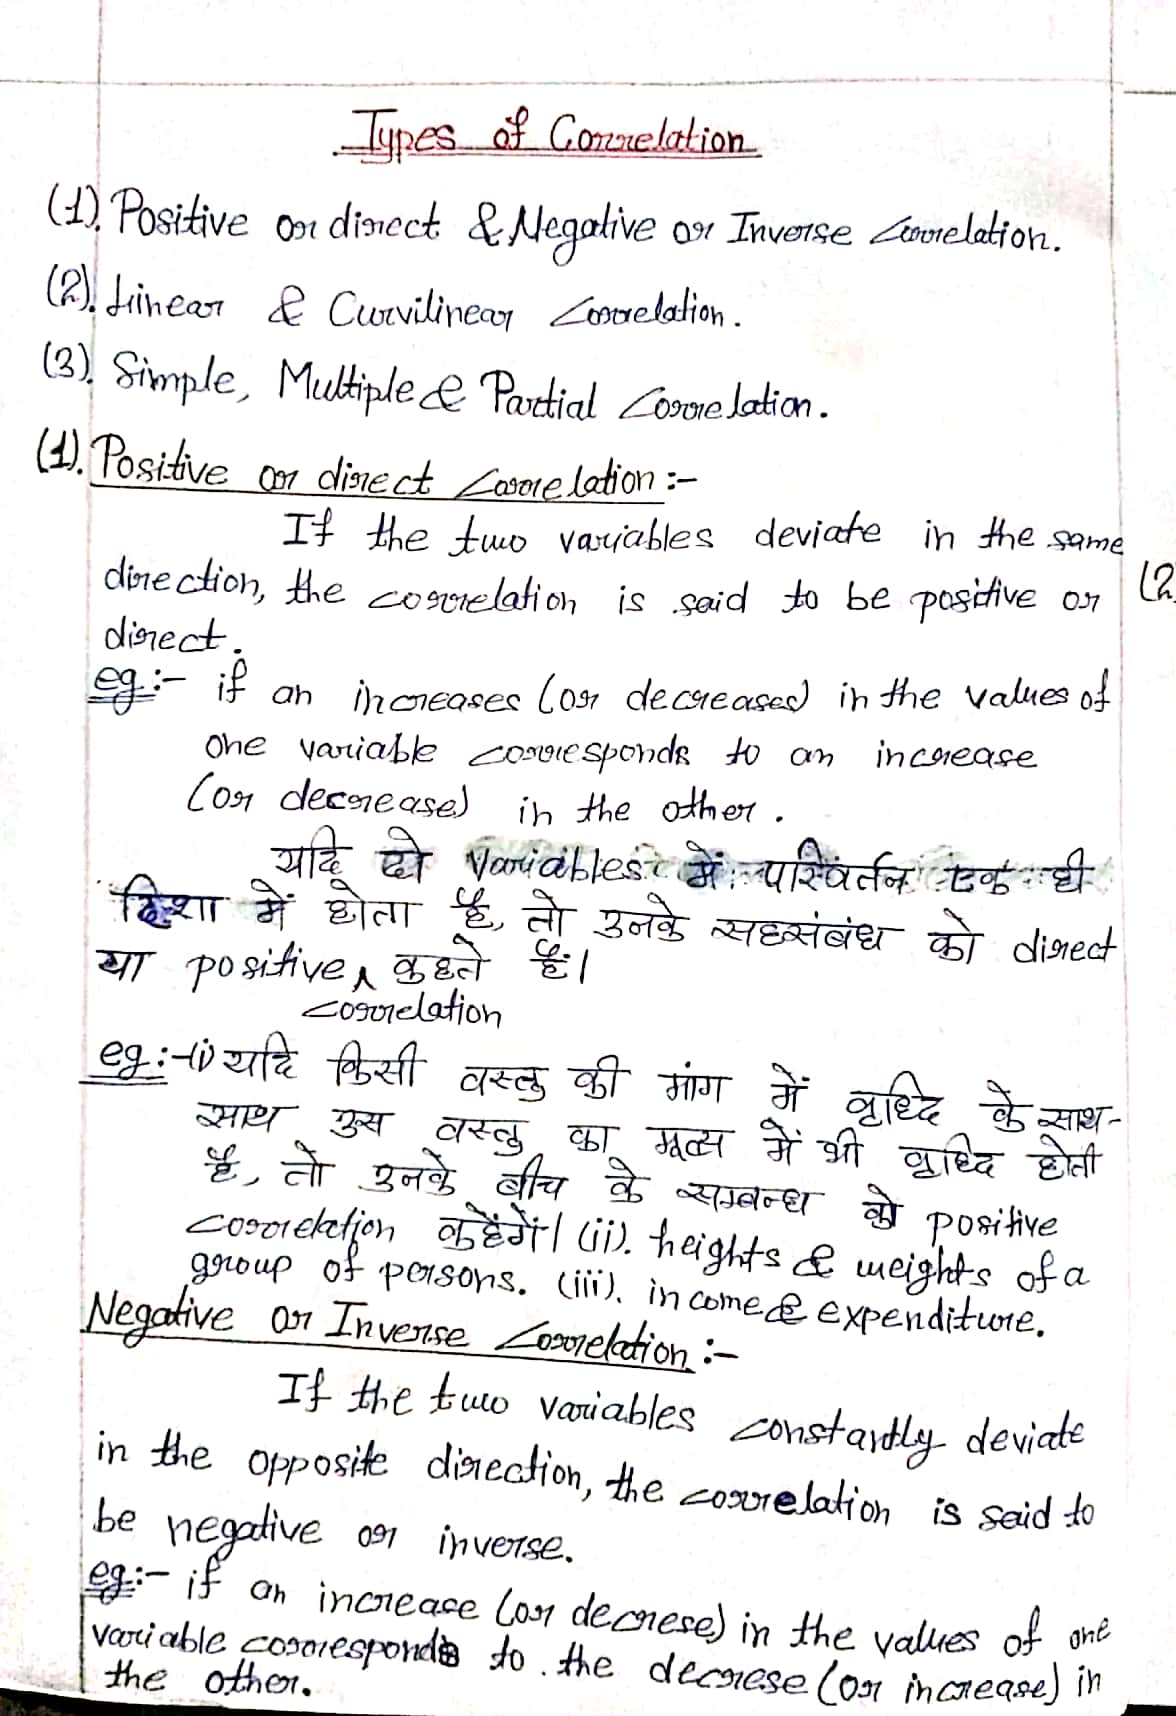 Types of Correlation
(1). Positive or direct & Negative or Inverse Correlation.
(2). Linear & Curvilinear Correlation.
(3). Simple, Multiple & Partial Correlation.
(1). Positive or direct Correlation :-
If the two variables deviate in the same
direction, the correlation is said to be positive or
direct.
(2
eg:- if an increases (or decreases) in the values of
one variable corresponds to an increase
(or decrease) in the other.
यदि दो variables में परिवर्तन एक ही
दिशा में होता है, तो उनके सहसंबंध को direct
या positive ∧ कहते हैं।
correlation
eg:-(i) यदि किसी वस्तु की मांग में वृध्दि के साथ-
साथ उस वस्तु का मूल्य में भी वृध्दि होती
है, तो उनके बीच के सम्बन्ध को positive
correlation कहेंगें। (ii). heights & weights of a
group of persons. (iii). income & expenditure.
Negative or Inverse Correlation :-
If the two variables constantly deviate
in the opposite direction, the correlation is said to
be negative or inverse.
eg:- if an increase (or decrese) in the values of one
variable corresponds to the decrese (or increase) in
the other.